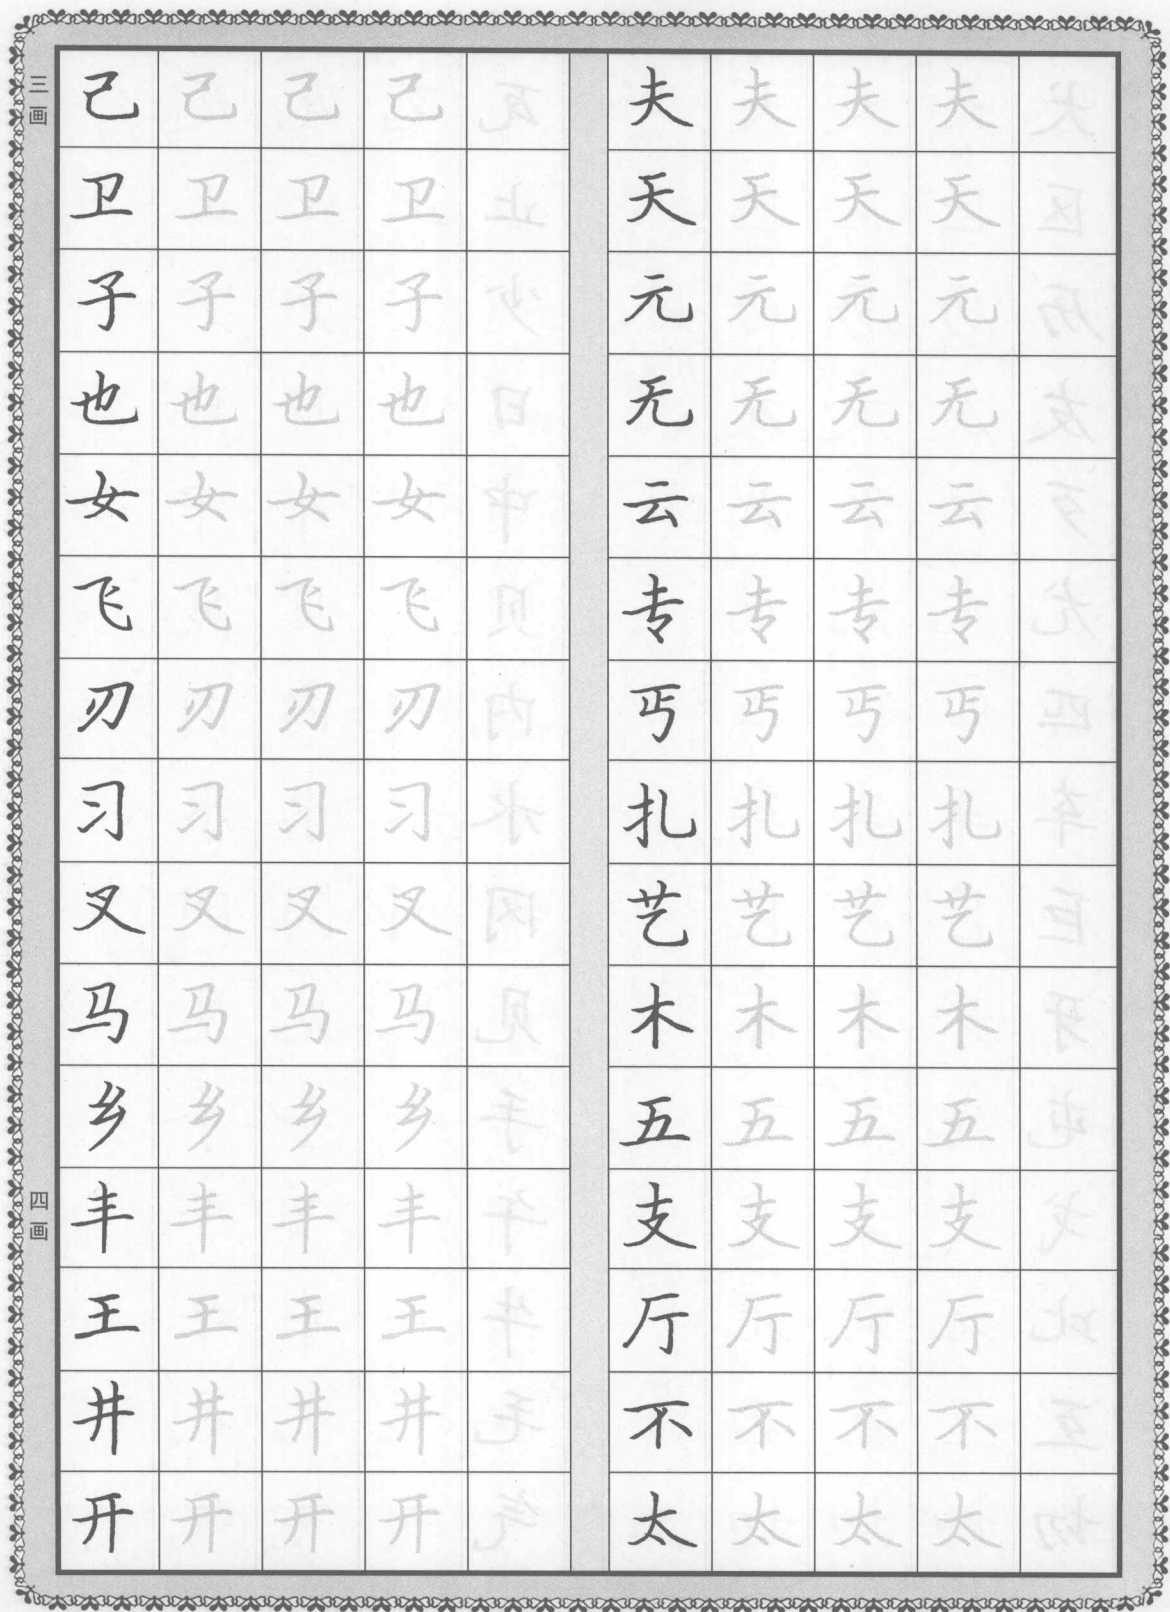 三画
己 己 己 己
卫 卫 卫 卫
子 子 子 子
也 也 也 也
女 女 女 女
飞 飞 飞 飞
刃 刃 刃 刃
习 习 习 习
叉 叉 叉 叉
马 马 马 马
乡 乡 乡 乡
四画
丰 丰 丰 丰
王 王 王 王
井 井 井 井
开 开 开 开
夫 夫 夫 夫
天 天 天 天
元 元 元 元
无 无 无 无
云 云 云 云
专 专 专 专
丐 丐 丐 丐
扎 扎 扎 扎
艺 艺 艺 艺
木 木 木 木
五 五 五 五
支 支 支 支
厅 厅 厅 厅
不 不 不 不
太 太 太 太